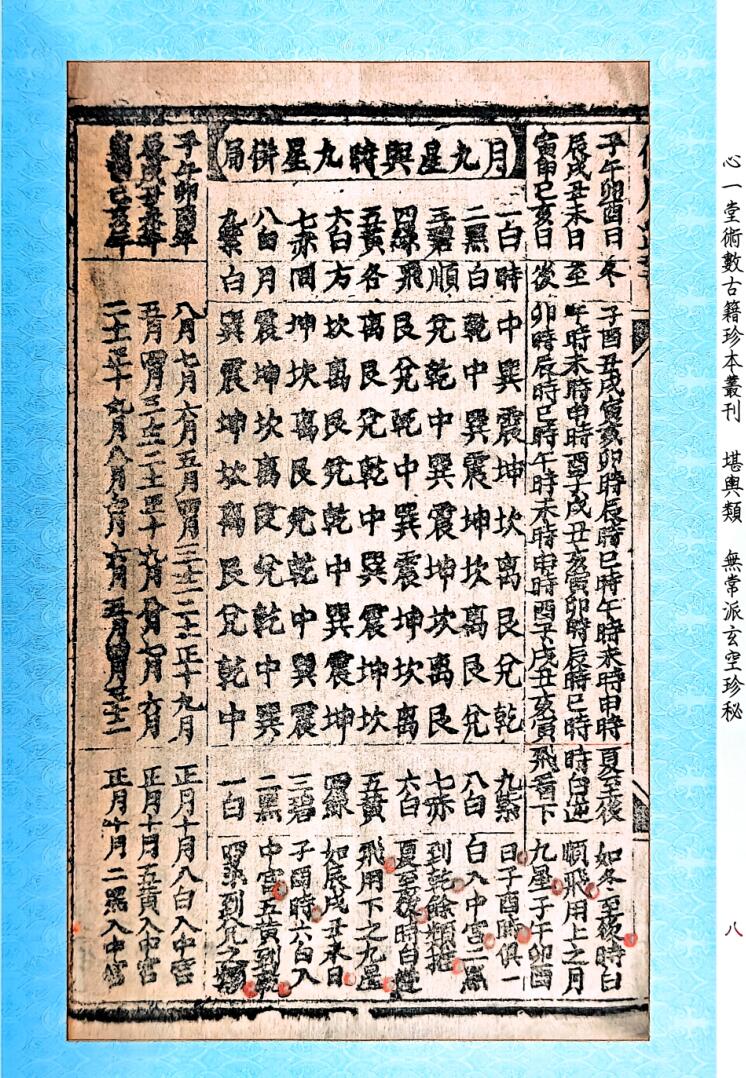 心一堂術數古籍珍本叢刊 堪輿類 無常派玄空珍秘
八
子午卯酉日 冬 子酉丑戌寅亥卯時辰時巳時午時未時申時 夏至後 如冬至後時白
辰戌丑未日 至 午時未時申時酉子戌丑亥寅卯時辰時巳時 時白逆 順飛用上之月
寅申巳亥日 後 卯時辰時巳時午時未時申時酉子戌丑亥寅 飛看下 九星子午卯酉
月九星與時九星併局
一白時 中巽震坤坎离艮兌乾 九紫 日子酉時俱一
二黑白 乾中巽震坤坎离艮兌 八白 白入中宮二黑
三碧順 兌乾中巽震坤坎离艮 七赤 到乾餘類推
四綠飛 艮兌乾中巽震坤坎离 六白 夏至後時白逆
五黃各 离艮兌乾中巽震坤坎 五黃 飛用下之九星
六白方 坎离艮兌乾中巽震坤 四綠 如辰戌丑未日
七赤同 坤坎离艮兌乾中巽震 三碧 子酉時六白入
八白月 震坤坎离艮兌乾中巽 二黑 中宮五黃到乾
九紫白 巽震坤坎离艮兌乾中 一白 四綠到兌之類
子午卯酉年 八月七月六月五月四月三十二二十一正十九月 正月十月八白入中宮
辰戌丑未年 五月四月三十二二十一正十九月八月七月六月 正月十月五黃入中宮
寅申巳亥年 二十一正十九月八月七月六月五月四月三十二 正月十月二黑入中宮